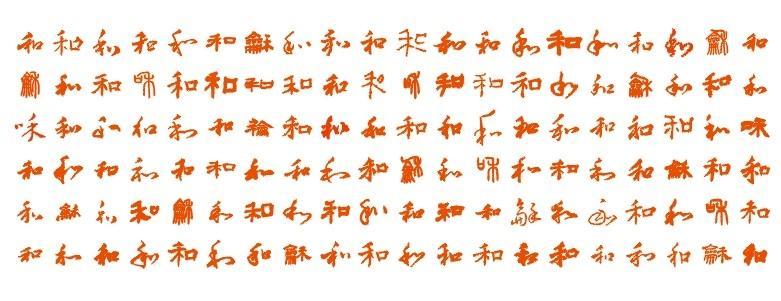 和和和和和和龢和和和和和和和和和和和龢和
龢和和咊和和和和和和咊和和和和和龢和和和
咊和和和和和龢和和和和和和和和和和和和咊
和和和和和和和和和和龢和咊和和和和龢和和
和龢和和龢和和和和和和和和龢和和和和咊和
和和和和和和和龢和和和和和和和和和和龢和